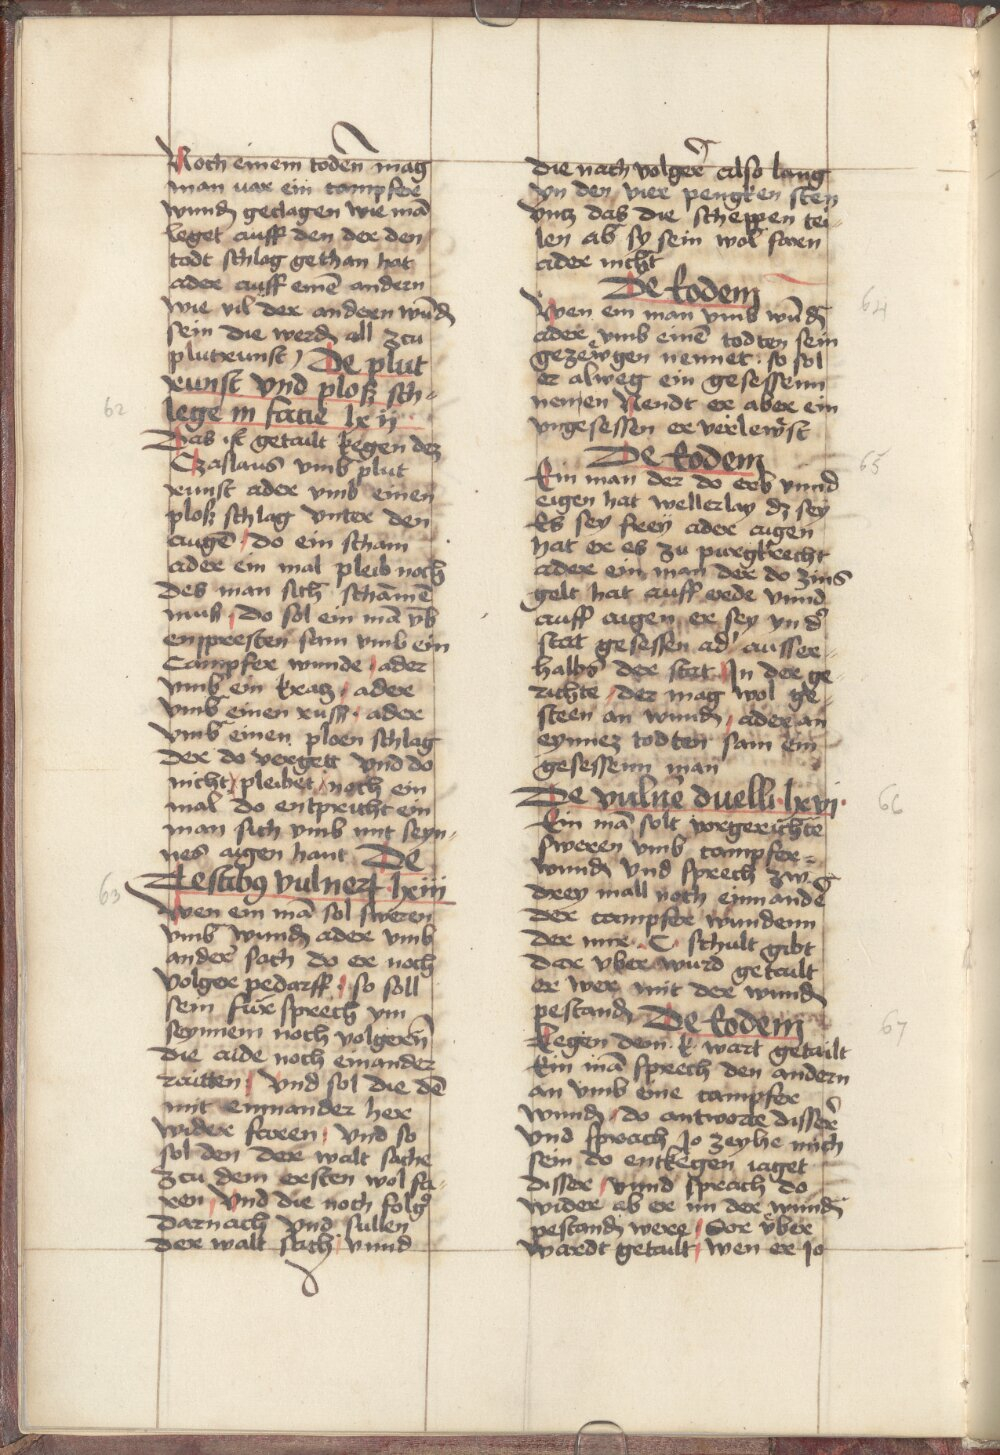 Noch einem todeñ mag
man var ein campfer
wund̄ geclagen wie mā
leget auff den der den
todt schlag gethan hat
ader auff einē andern
wie vil der anderen wūd̄
sein die werd̄ all zcu
plutrunst De plut
runst vnd ploß sch-
lege in facie lxij
62
Das ist getailt kegen dez
Czaslaus vmb plut
runst ader vmb einen
ploß schlag vnter den
augē do ein scham
ader ein mal pleib noch
des man sich schamē
muß do sol ein mā vb
enpresten sam vmb ein
campfer wunde ader
vmb ein kratz ader
vmb einen ruff ader
vmb einen ploen schlag
der do verget vnd do
nicht pleibet noch ein
mal do entpricht ein
man sich vmb mit seyn-
nes aigen hant De
Testibꝯ vulnerꝝ lxiii
63
Wen ein mā sol sweren
vmb wund̄ ader vmb
ander sach do er noch
volger pedarff so soll
sein fürsprech vm
seynnem noch volgerñ
die aide noch einander
raitten vnd sol die dē
mit einnander her
wider faren vnd so
sol den der walt sache
zcu dem ersten wol fa-
ren vnd die noch folg̉
darnach vnd sullen
der walt sach vnnd
die nach volger̄ also lang
yn den vier pengken sten
vntz das die scheppen tei-
len ab sy sein wol faren
ader nicht
De Eodem
64
Wen ein man vmb wūd̄
ader vmb einē todten sein
gezewgen nennet so sol
er alweg ein gesessenn
nemen Nendt er aber ein
vngesessen er verlewst
De Eodem
65
Ein man der do erb vnnd
eigen hat wellerlay dz sey
Es sey frey ader aigen
hat er es zu purgkrecht
ader ein man der do zins
gelt hat auff erde vnnd
auff aigen er sey yn d̉
stat gesessen ad̉ ausser-
halbs der stat In der ge-
richte der mag wol ge-
steen an wund̄ ader an
eynnez todten sam ein
gesessenn man
De vulnē duelli lxvj
66
Ein mā solt vorgerichte
sweren vmb campfer-
wund̄ vnd sprech zw̄
drey mall noch einnandē
der campfer wundenn
der mir C schult gibt
dar vber wurd getailt
er wer mit der wund̄
pestand̄ De Eodem
67
Kegen dem k wart getailt
Ein mā sprech den andern
an vmb eine campfer
wund̄ do antworte disser̄
vnd sprach Jo zeyhe mich
sein do entkegen iaget
disser vnnd sprach do
wider ab er im der wund̄
pestand̄ were Dor vber
wardt getailt wen er jo